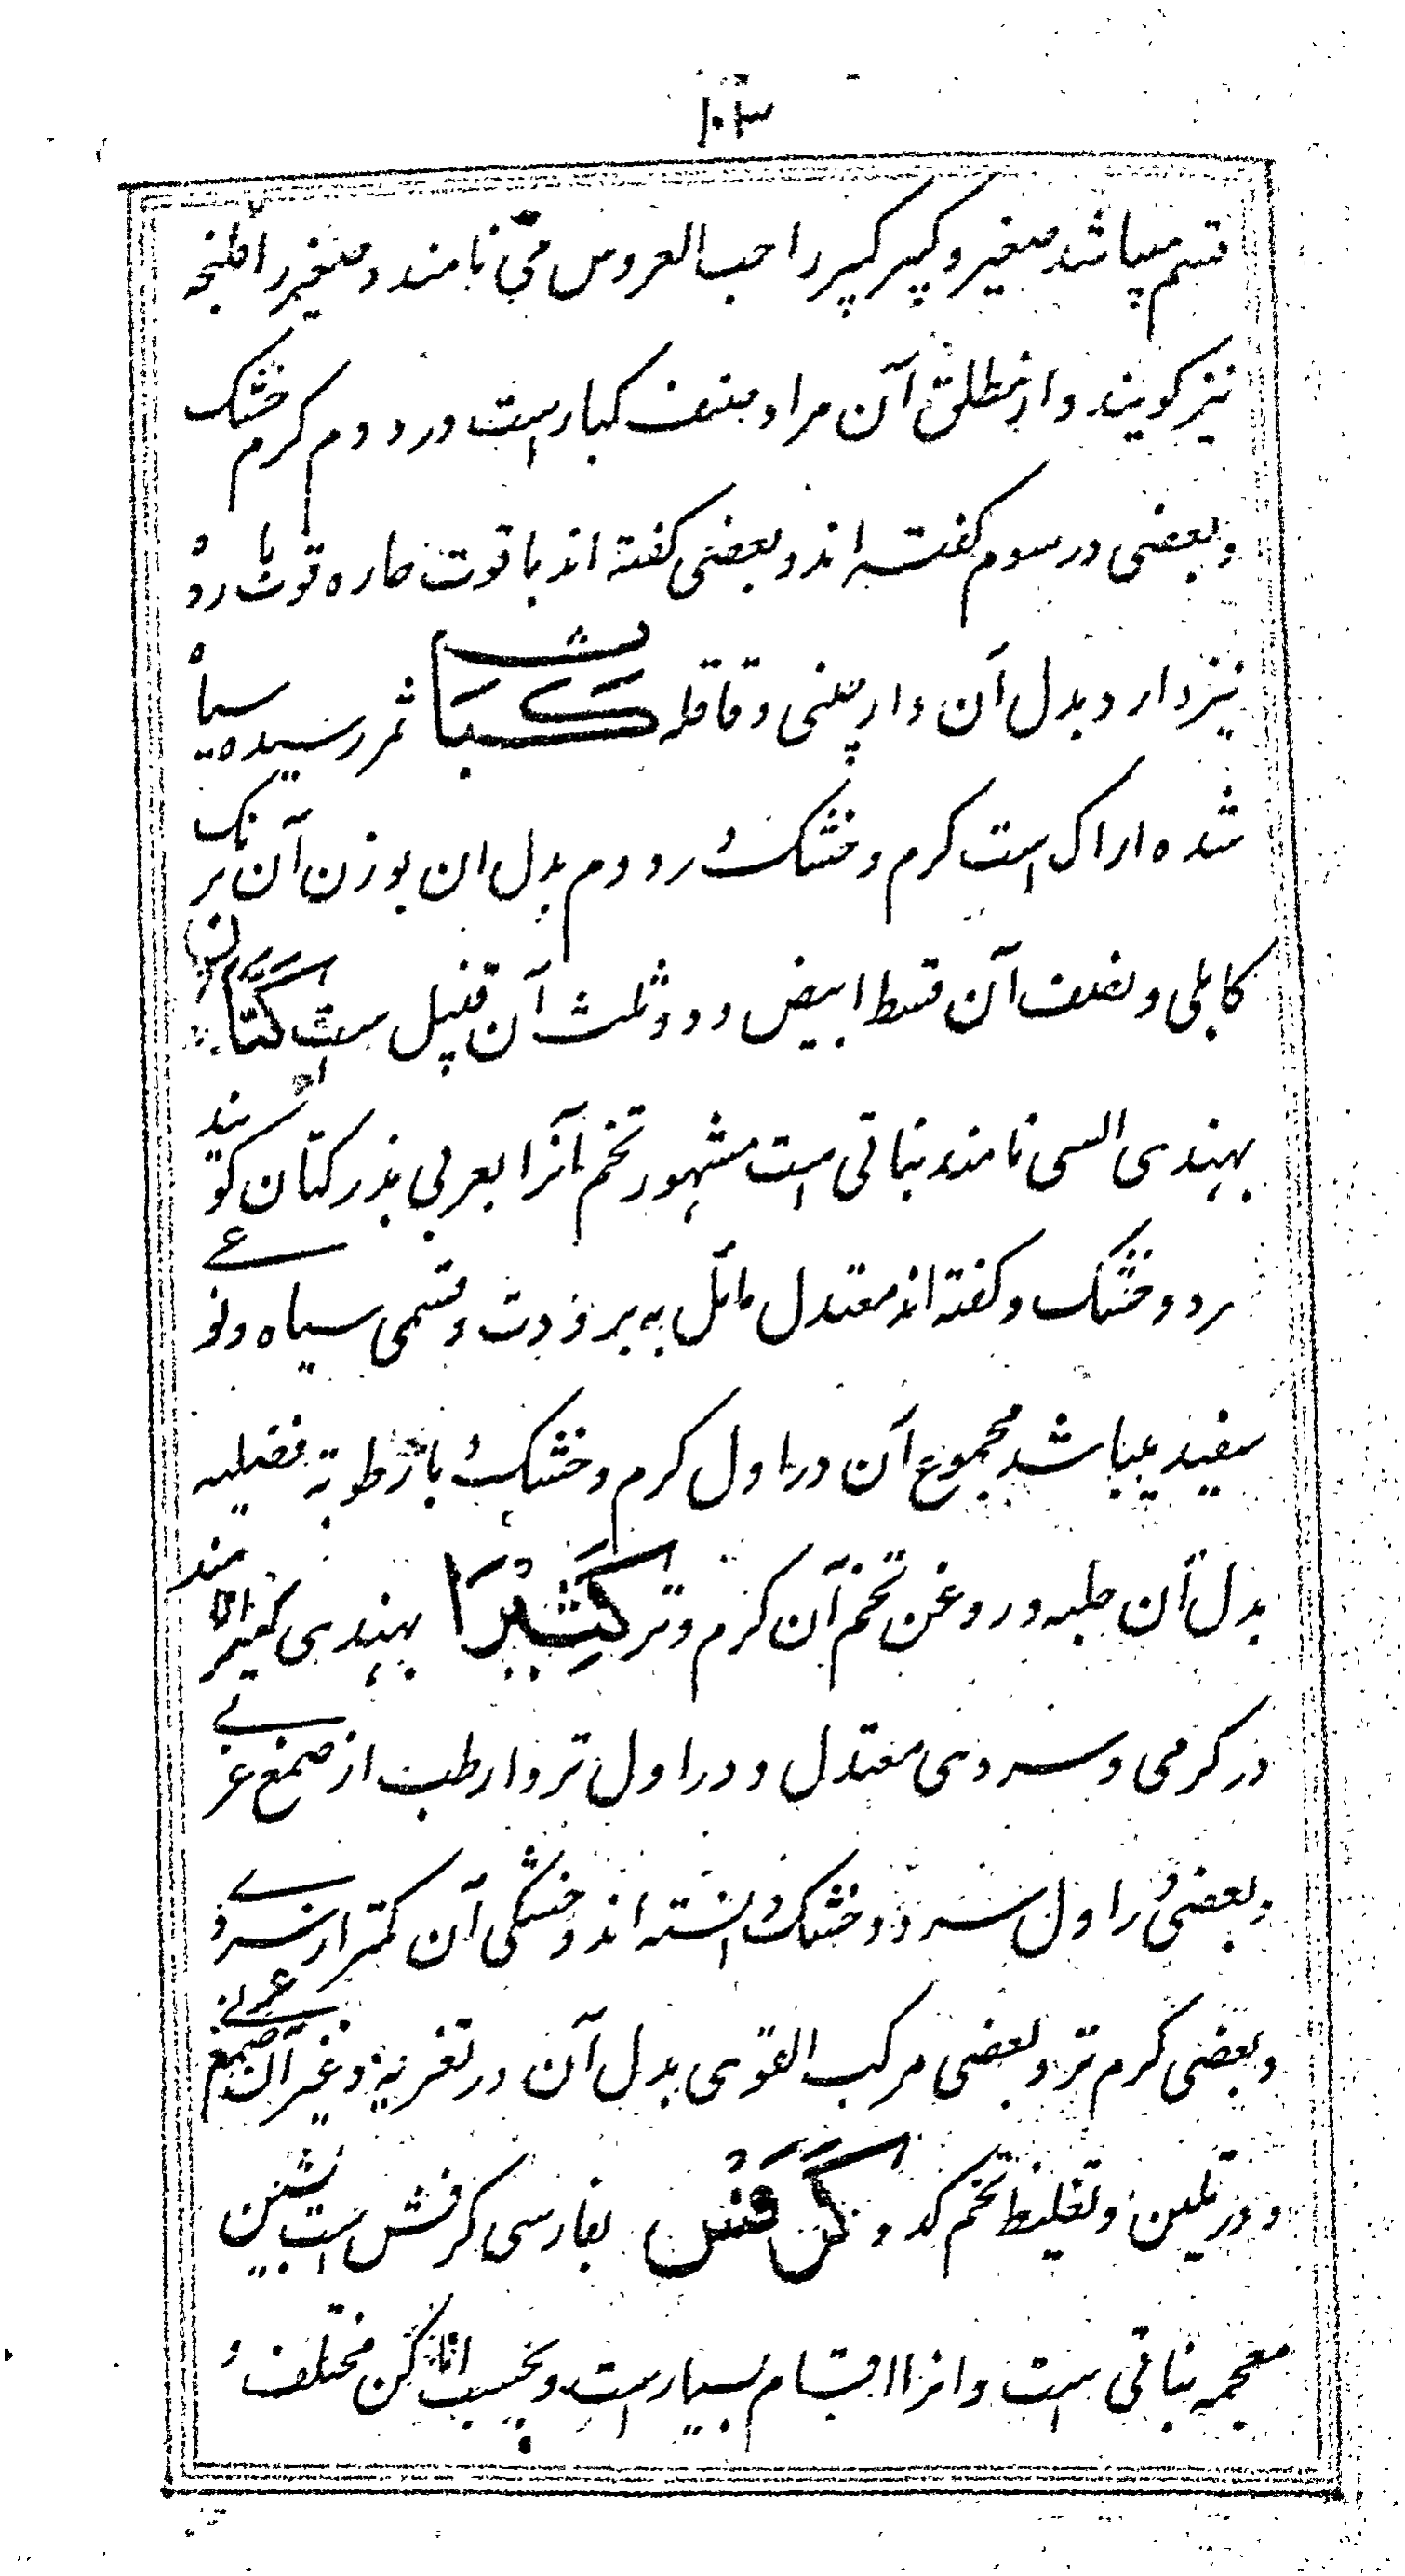 ۱۰۳
قسم میباشد صغیر و کبیر کبیر را حب العروس می نامند و صغیر را فلنجه
نیز کویند و از مطلق آن مراد صنف کبار است در دوم کرم خشک
و بعضی در سوم کفته اند و بعضی کفته اند با قوت حاره قوت بارده
نیز دارد بدل آن دارچینی و قاقله کَبَاث ثمر رسیده سیاه
شده اراک است کرم و خشک در دوم بدل ان بوزن آن برنک
کابلی و نصف آن قسط ابیض و دو ثلث آن فلفل است کَتَّان
بهندی السی نامند نباتی است مشهور تخم آنرا بعربی بذر کتان کویند
سرد و خشک و کفته اند معتدل مائل به برودت و قسمی سیاه و نوعے
سفید میباشد مجموع آن در اول کرم و خشک با رطوبة فضلیه
بدل آن حلبه و روغن تخم آن کرم و تر کَثِیْرَا بهندی کتیرا نامند
در کرمی و سردی معتدل و در اول تر و ارطب از صمغ عربے
و بعضی در اول سرد و خشک دانسته اند و خشکی آن کمتر از سردے
و بعضی کرم تر و بعضی مرکب القوی بدل آن در تغریه و غیر آن صمغ عربے
و در تلین و تغلیظ تخم کدو کَرَفْس بفارسی کرفش است بشین
معجمه نباتی است و انرا اقسام بسیار است و بحسب اماکن مختلف و